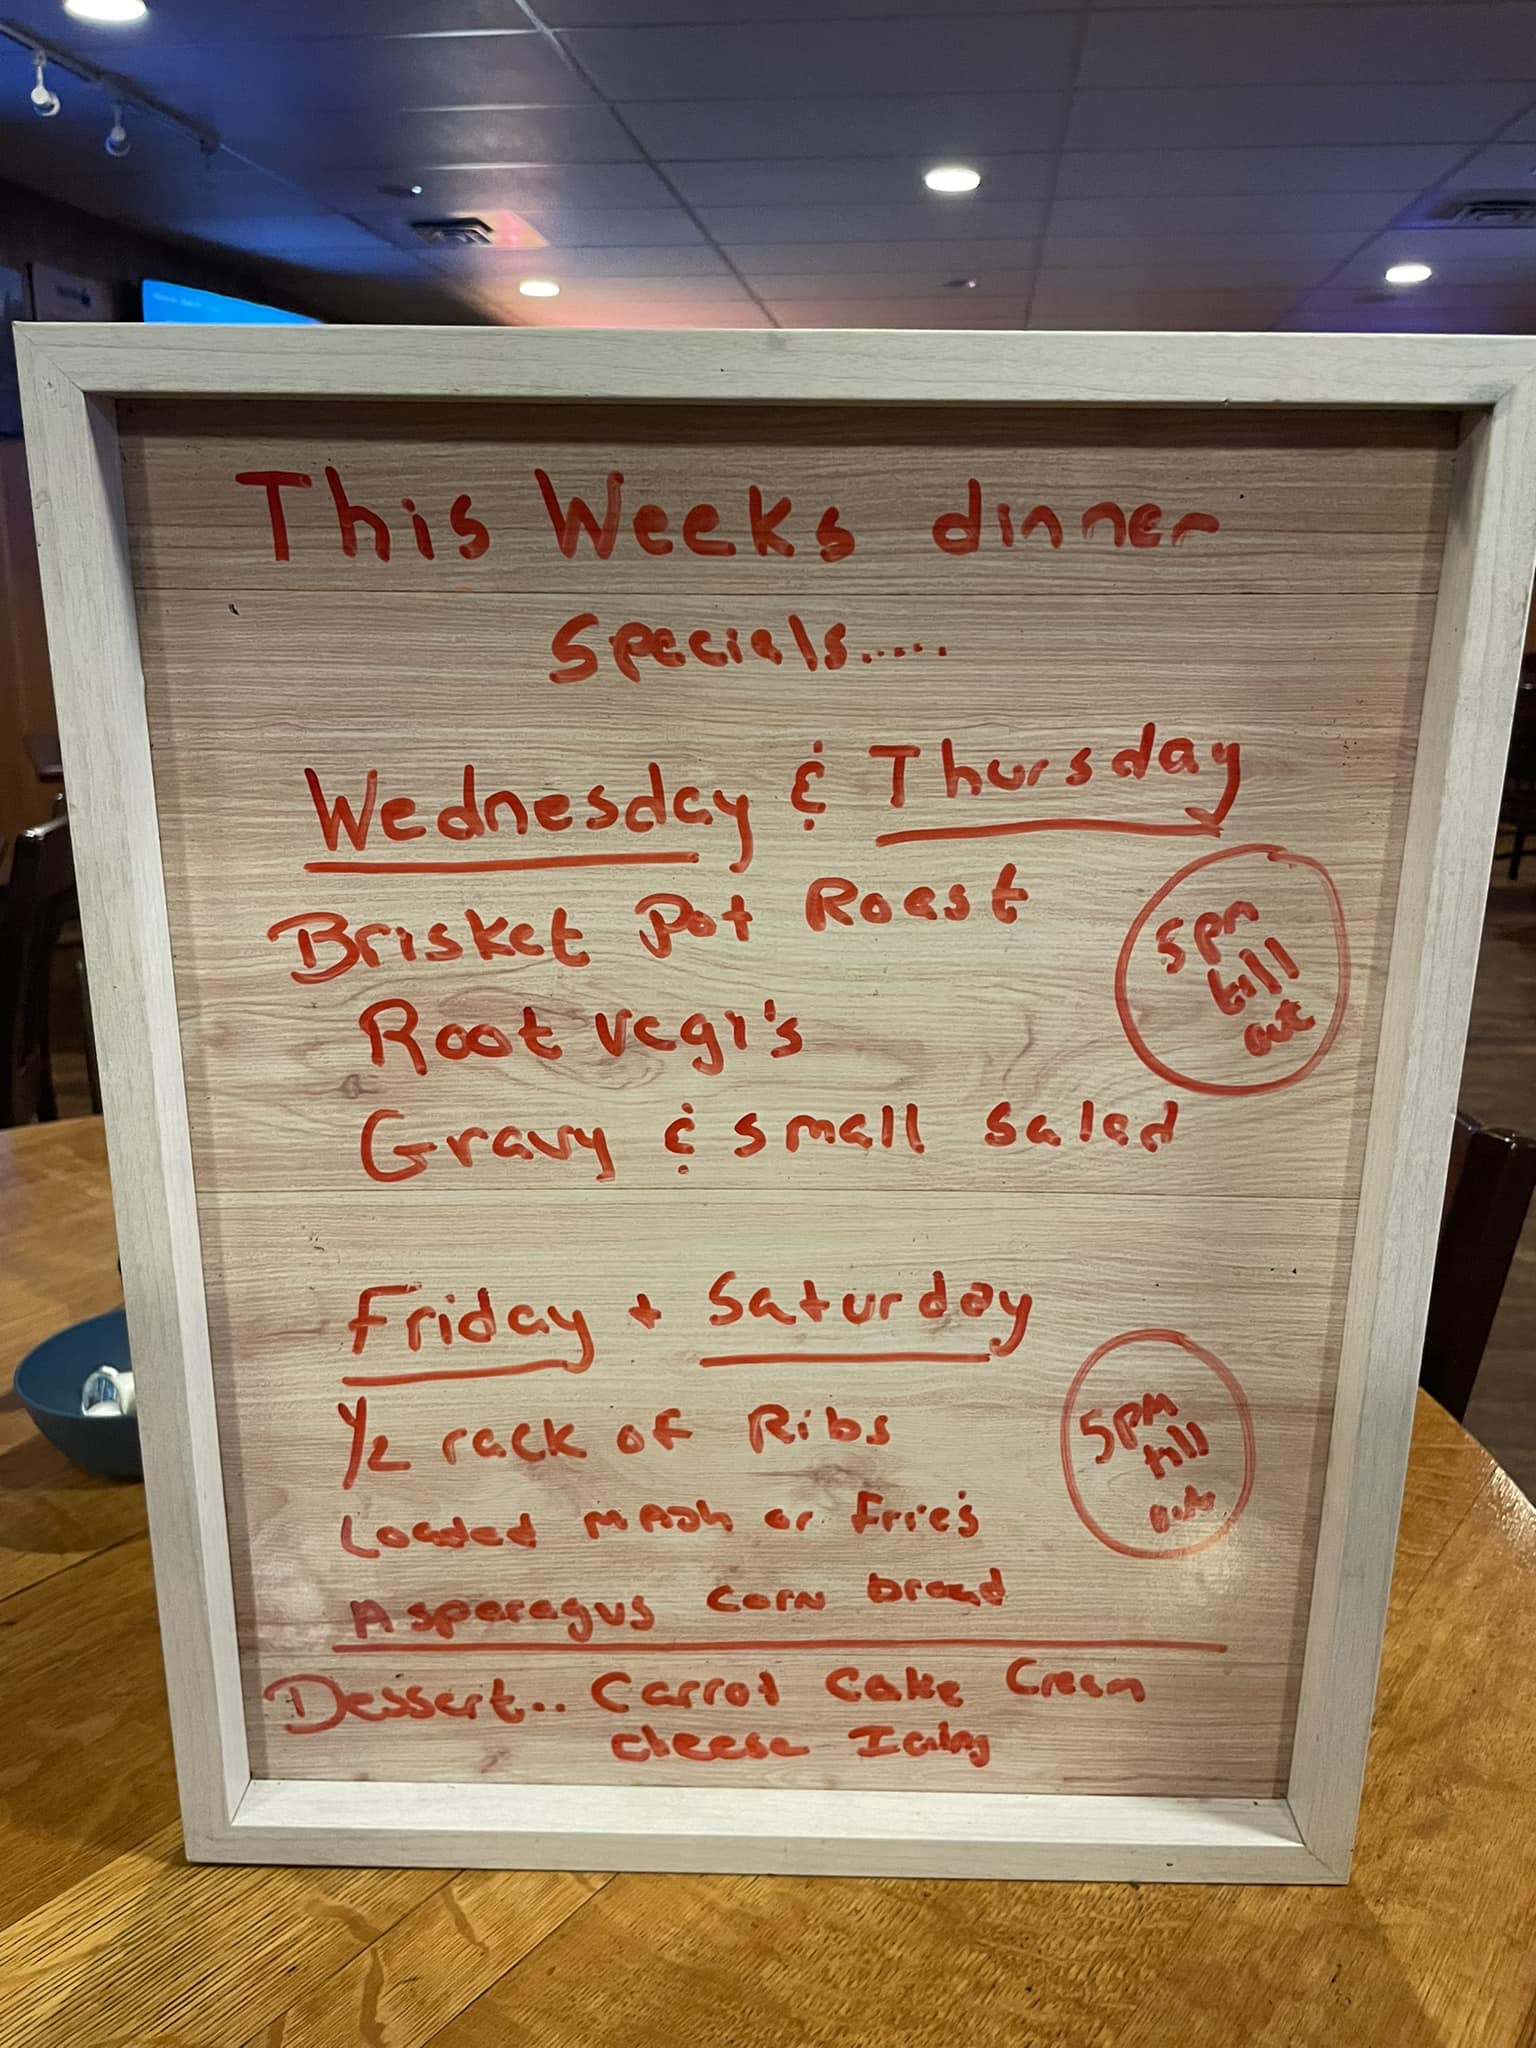 This Weeks dinner
Specials.....
Wednesday & Thursday
Brisket Pot Roast
5pm
till
out
Root vegi's
Gravy & small salad
Friday + Saturday
1/2 rack of Ribs
5pm
till
out
Loaded mash or Frie's
Asparagus corn bread
Dessert.. Carrot Cake Cream
cheese Icing